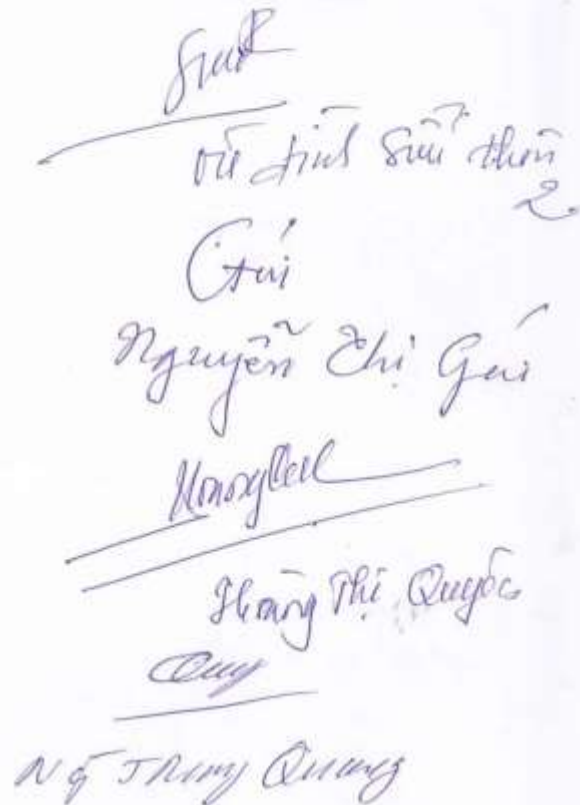 Vũ Đình Sửu thôn
2
Gái
Nguyễn Thị Gái
Hoàng Thị Quyốc
Quy
Ng Trung Quang